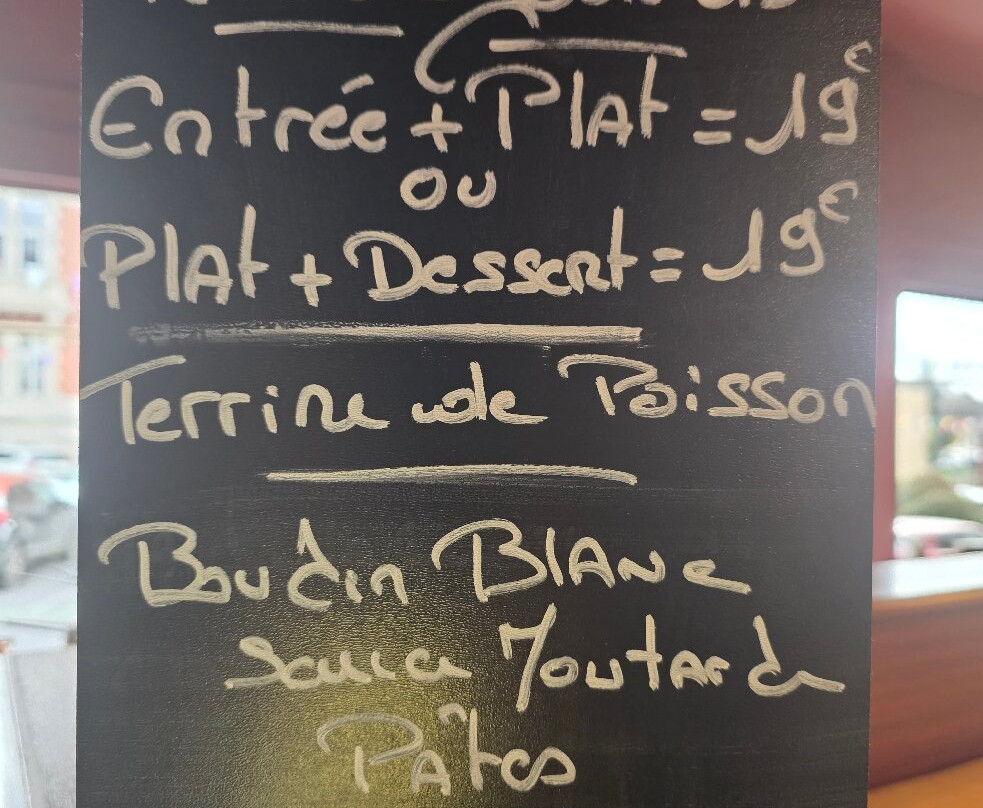 Entrée + Plat = 19€
ou
Plat + Dessert = 19€
Terrine de Poisson
Boudin Blanc
Sauce Moutarde
Pâtes